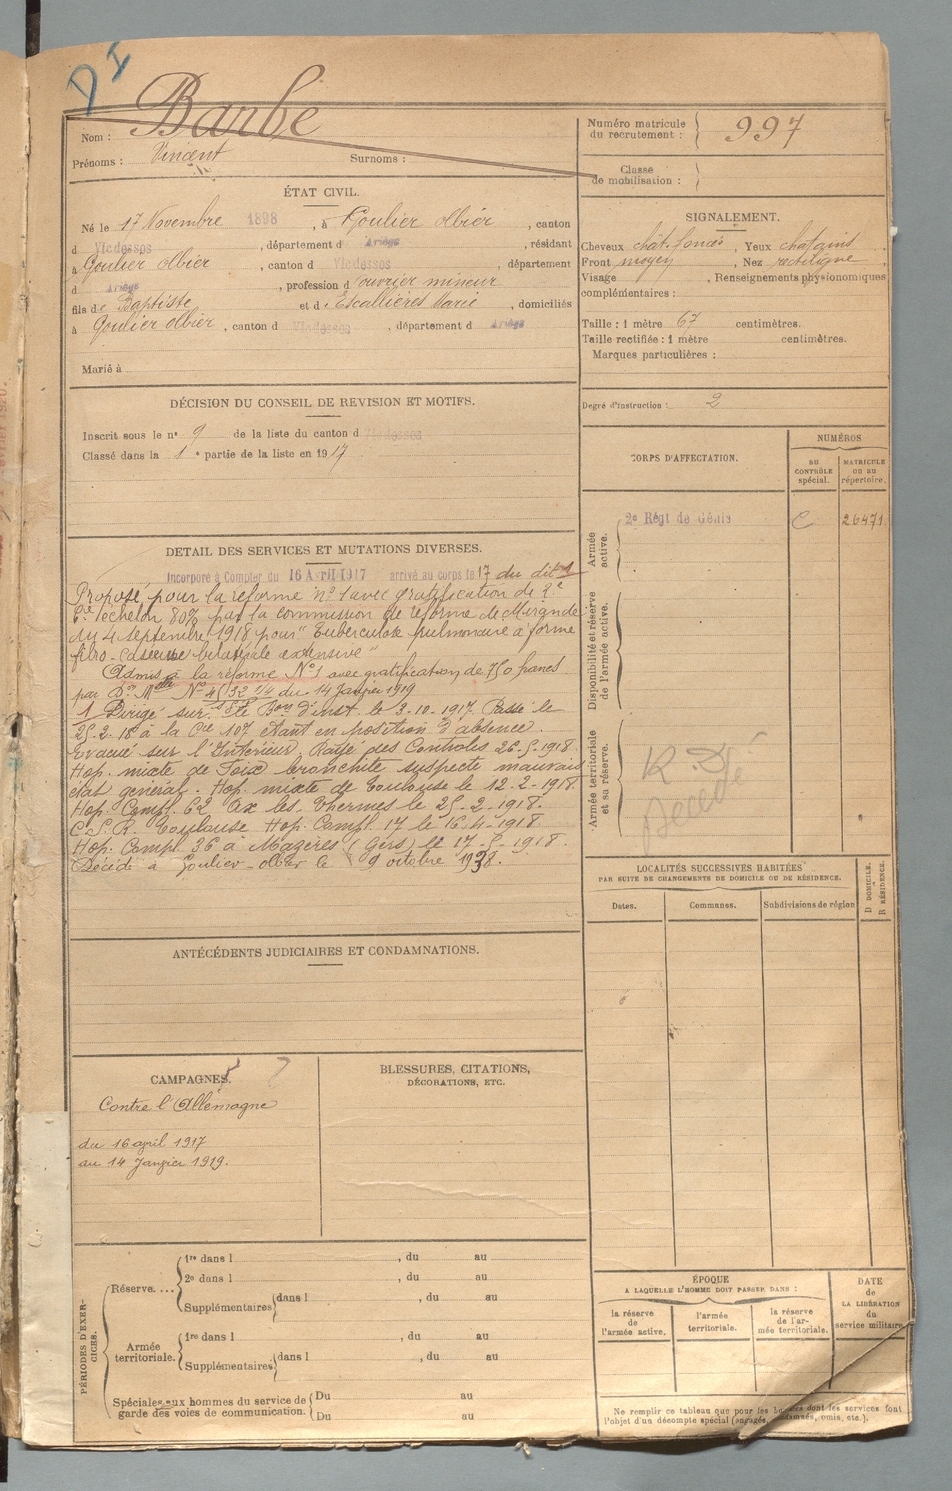 DI
Nom : Barbe
Prénoms : Vincent Surnoms :
Numéro matricule
du recrutement : 997
Classe
de mobilisation :
ÉTAT CIVIL.
Né le 17 Novembre 1898, à Goulier Olbier, canton
d Vicdessos, département d Ariège, résidant
à Goulier Olbier, canton d Vicdessos, département
d Ariège, profession d'ouvrier mineur
fils de Baptiste et d'Escallières Marie, domiciliés
à Goulier Olbier, canton d Vicdessos, département d Ariège
Marié à
SIGNALEMENT.
Cheveux chat. foncés, Yeux chatains
Front moyen, Nez rectiligne,
Visage , Renseignements physionomiques
complémentaires :
Taille : 1 mètre 67 centimètres.
Taille rectifiée : 1 mètre centimètres.
Marques particulières :
Degré d'instruction : 2
DÉCISION DU CONSEIL DE REVISION ET MOTIFS.
Inscrit sous le n° 9 de la liste du canton d Vicdessos
Classé dans la 1e partie de la liste en 1917
CORPS D'AFFECTATION.
NUMÉROS
AU
CONTRÔLE
spécial.
MATRICULE
OU AU
répertoire.
Armée
active.
2e Régt de Génie C 26471
Disponibilité et réserve
de l'armée active.
Armée territoriale
et sa réserve.
R.D.
Décédé
DETAIL DES SERVICES ET MUTATIONS DIVERSES.
Incorporé à Compter du 16 Avril 1917 arrivé au corps le 17 du dit 1
Proposé pour la réforme n° 1 avec gratification de 2e
Cie échelon 80% par la commission de réforme de Mirande
du 4 septembre 1918 pour "Tuberculose pulmonaire à forme
fibro-caséeuse bilatérale extensive"
Admis à la réforme N°1 avec gratification de 750 francs
par Don Mlle N° du 14 Janvier 1919
1 Dirigé sur le Bon d'inst. le 3-10-1917. Passé le
25-2-18 à la Cie 107 étant en position d'absence.
Evacué sur l'Intérieur. Rayé des Controles 26-5-1918.
Hop. mixte de Foix bronchite suspecte mauvais
état général. Hop. mixte de Toulouse le 12-2-1918.
Hop. Compl. 62 Ax les Thermes le 25-2-1918.
C.S.R. Toulouse Hop. Compl. 17 le 16-4-1918
Hop. Compl. 36 à Mazères (Gers) le 17-5-1918.
Décédé à Goulier-Olbier le 9 octobre 1938.
LOCALITÉS SUCCESSIVES HABITÉES
PAR SUITE DE CHANGEMENTS DE DOMICILE OU DE RÉSIDENCE.
Dates.
Communes.
Subdivisions de région
D DOMICILE.
R RÉSIDENCE.
ANTÉCÉDENTS JUDICIAIRES ET CONDAMNATIONS.
CAMPAGNES.
Contre l'Allemagne
du 16 avril 1917
au 14 Janvier 1919.
BLESSURES, CITATIONS,
DÉCORATIONS, ETC.
PÉRIODES D'EXER-
CICES.
Réserve....
1re dans l , du au
2e dans l , du au
Supplémentaires dans l , du au
Armée
territoriale.
1re dans l , du au
Supplémentaires dans l , du au
Spéciales aux hommes du service de
garde des voies de communication.
Du au
Du au
ÉPOQUE
A LAQUELLE L'HOMME DOIT PASSER DANS :
la réserve
de
l'armée active.
l'armée
territoriale.
la réserve
de l'ar-
mée territoriale.
DATE
de
LA LIBÉRATION
du
service militaire.
Ne remplir ce tableau que pour les hommes dont les services font
l'objet d'un décompte spécial (engagés, condamnés, omis, etc.).